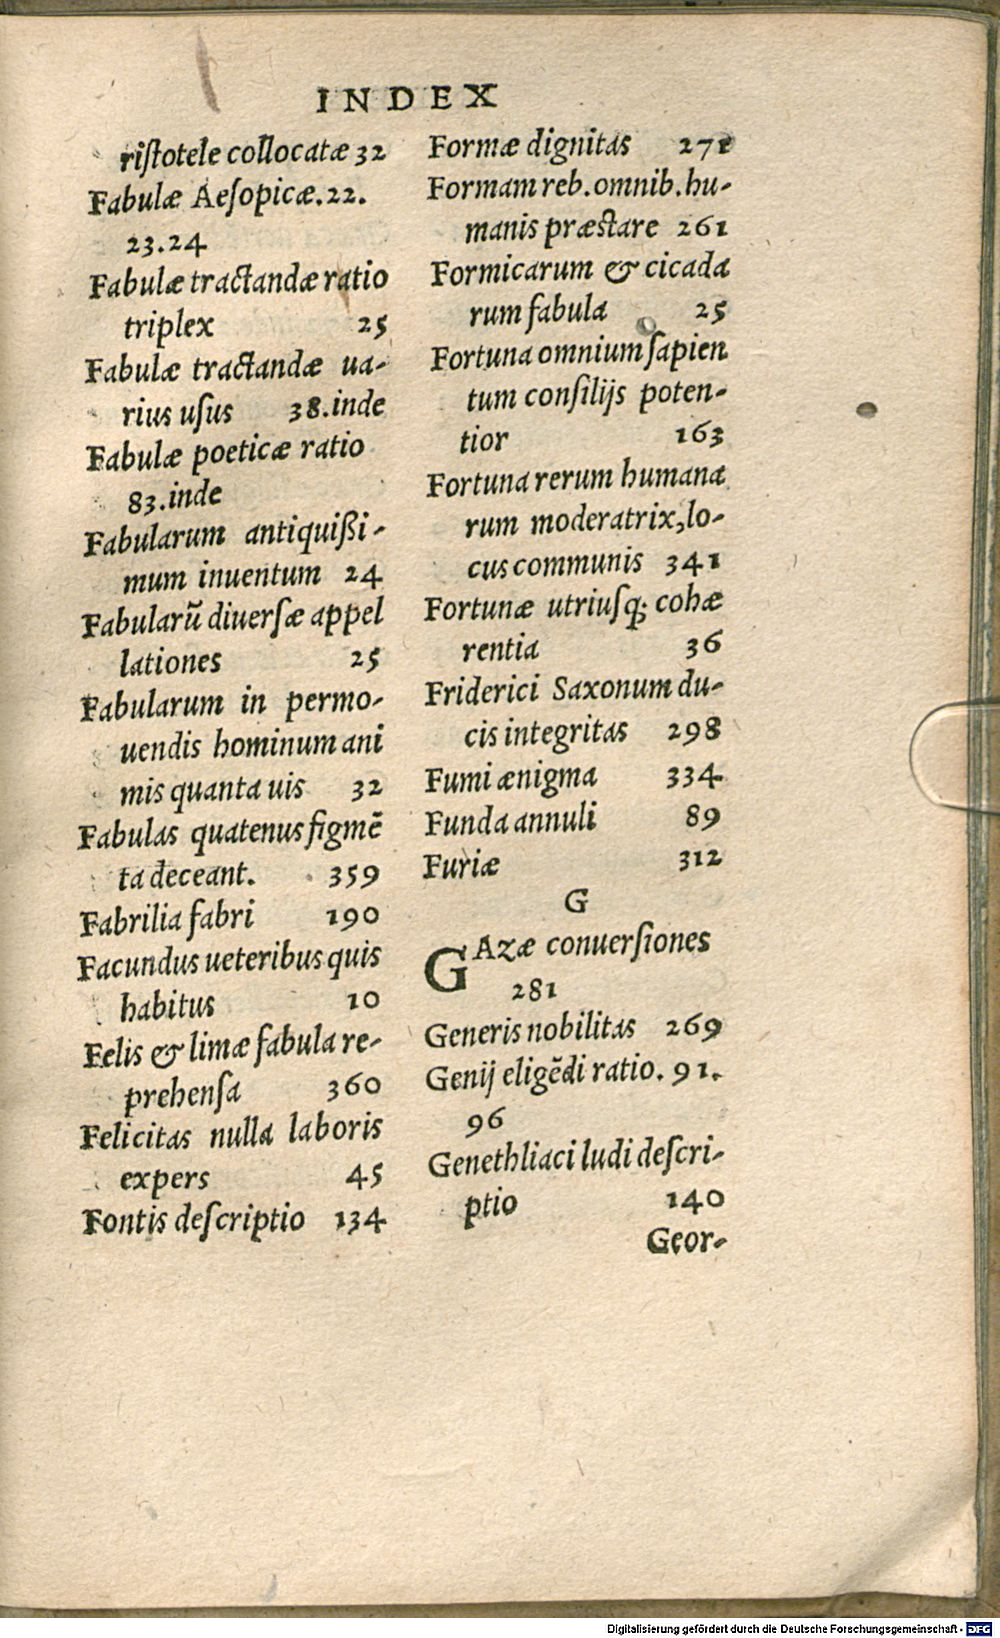 INDEX
riſtotele collocatæ 32
Fabulæ Aeſopicæ.22.
23.24
Fabulæ tractandæ ratio
triplex 25
Fabulæ tractandæ ua-
rius uſus 38.inde
Fabulæ poeticæ ratio
83.inde
Fabularum antiquißi-
mum inuentum 24
Fabularũ diuerſæ appel
lationes 25
Fabularum in permo-
uendis hominum ani
mis quanta uis 32
Fabulas quatenus figmẽ
ta deceant. 359
Fabrilia fabri 190
Facundus ueteribus quis
habitus 10
Felis & limæ fabula re-
prehenſa 360
Felicitas nulla laboris
expers 45
Fontis deſcriptio 134
Formæ dignitas 271
Formam reb.omnib.hu-
manis præstare 261
Formicarum & cicada
rum fabula 25
Fortuna omnium ſapien
tum conſilijs poten-
tior 163
Fortuna rerum humana
rum moderatrix,lo-
cus communis 341
Fortunæ utriuſq; cohæ
rentia 36
Friderici Saxonum du-
cis integritas 298
Fumi ænigma 334
Funda annuli 89
Furiæ 312
G
GAzæ conuerſiones
281
Generis nobilitas 269
Genij eligẽdi ratio. 91.
96
Genethliaci ludi deſcri-
ptio 140
Geor-
Digitalisierung gefördert durch die Deutsche Forschungsgemeinschaft - DFG